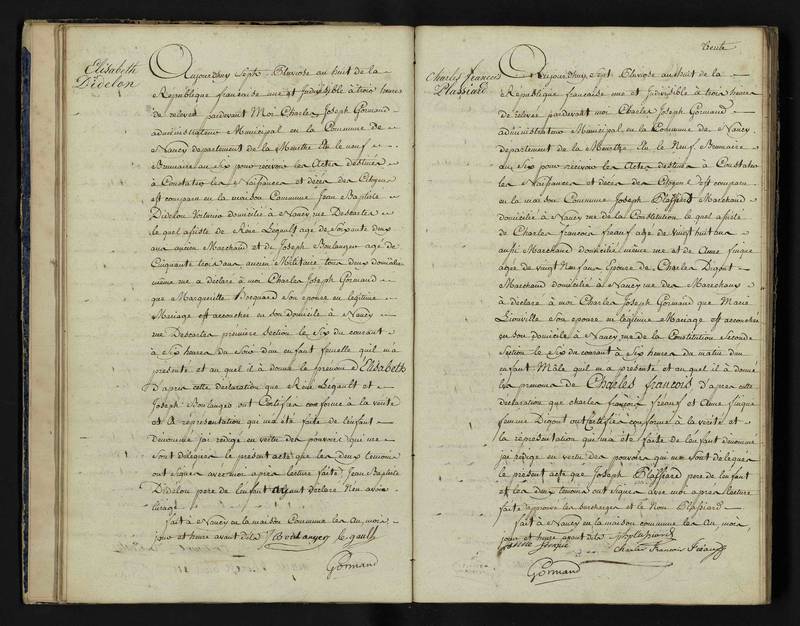 Elisabeth
Didelon
Aujourdhuy Sept Pluviose an huit de la
République francaise une et Indivisible à trois heures
de relevée pardevant Moi Charles Joseph Gormand
administrateur Municipal en la Commune de
Nancy departement de la Meurthe Elu le neuf
Brumaire an Six pour recevoir les Actes destinés
à Constater les Naissances et décès des Citoyens
est comparu en la maison Commune Jean Baptiste
Didelon domicilié à Nancy rue Descartes
le quel assisté de Réné Legault agé de Soixante deux
ans ancien Marchand et de Joseph Boulanger agé de
Cinquante trois ans ancien Militaire tous deux domiciliés
même rue a déclaré à moi Charles Joseph Gormand
que Margueritte Bocquard son epouse en legitime
Mariage est accouchée en son domicile à Nancy
rue Descartes premiere Section le Six du courant
à Six heures du Soir d'un enfant femelle quil m'a
presenté et au quel il à donné le prénom d'Elisabeth
d'après cette déclaration que Réné Legault et
Joseph Boulanger ont Certifiée conforme à la verité
et la representation qui m'a été faite de lenfant
dénommé jai rédigé en vertu des pouvoirs qui me
sont délégués le présent acte que les deux temoins
ont signés avec moi après lecture faite Jean Baptiste
Didelon pere de lenfant ayant déclaré Nen avoir
lusage
fait à Nancy en la maison Commune les An, mois
jour et heure avant dits J Boulanger le gault
Gormand
trente
Charles françois
Plassiard
Aujourdhuy Sept Pluviose an huit de la
République francaise une et indivisible à trois heures
de relevée pardevant moi Charles Joseph Gormand
administrateur Municipal en la Commune de Nancy
departement de la Meurthe Elu le Neuf Brumaire
an Six pour recevoir les Actes destinés à Constater
les Naissances et décès des Citoyens Est comparu
en la maison Commune Joseph Plassiard Marchand
domicilié à Nancy rue de la Constitution le quel assisté
de Charles francois agé de vingt huit ans
aussi Marchand domicilié même rue et de Anne
agée de vingt Neuf ans Epouse de Charles Digout
Marchand domicilié à Nancy rue des Marechaux
à déclaré à moi Charles Joseph Gormand que Marie
Liouville son epouse en legitime Mariage est accouchée
en son domicile à Nancy rue de la Constitution Seconde
Section le Six du courant à Six heures du matin d'un
enfant Mâle quil m'a présenté et au quel il à donné
les prenoms de Charles francois d'apres cette
déclaration que charles françois et Anne
femme Digout ont certifiée conforme à la verité et
la représentation qui m'a été faite de lenfant dénommé
jai rédigé en vertu des pouvoirs qui me sont délégués
le présent acte que Joseph Plassiard pere de lenfant
et les deux temoins ont signés avec moi apres lecture
faite approuvé les surcharges et le Nom Plassiard
fait à Nancy en la maison commune les An, mois
jour et heure avant dits J Plassiard
Charles Francois
Gormand